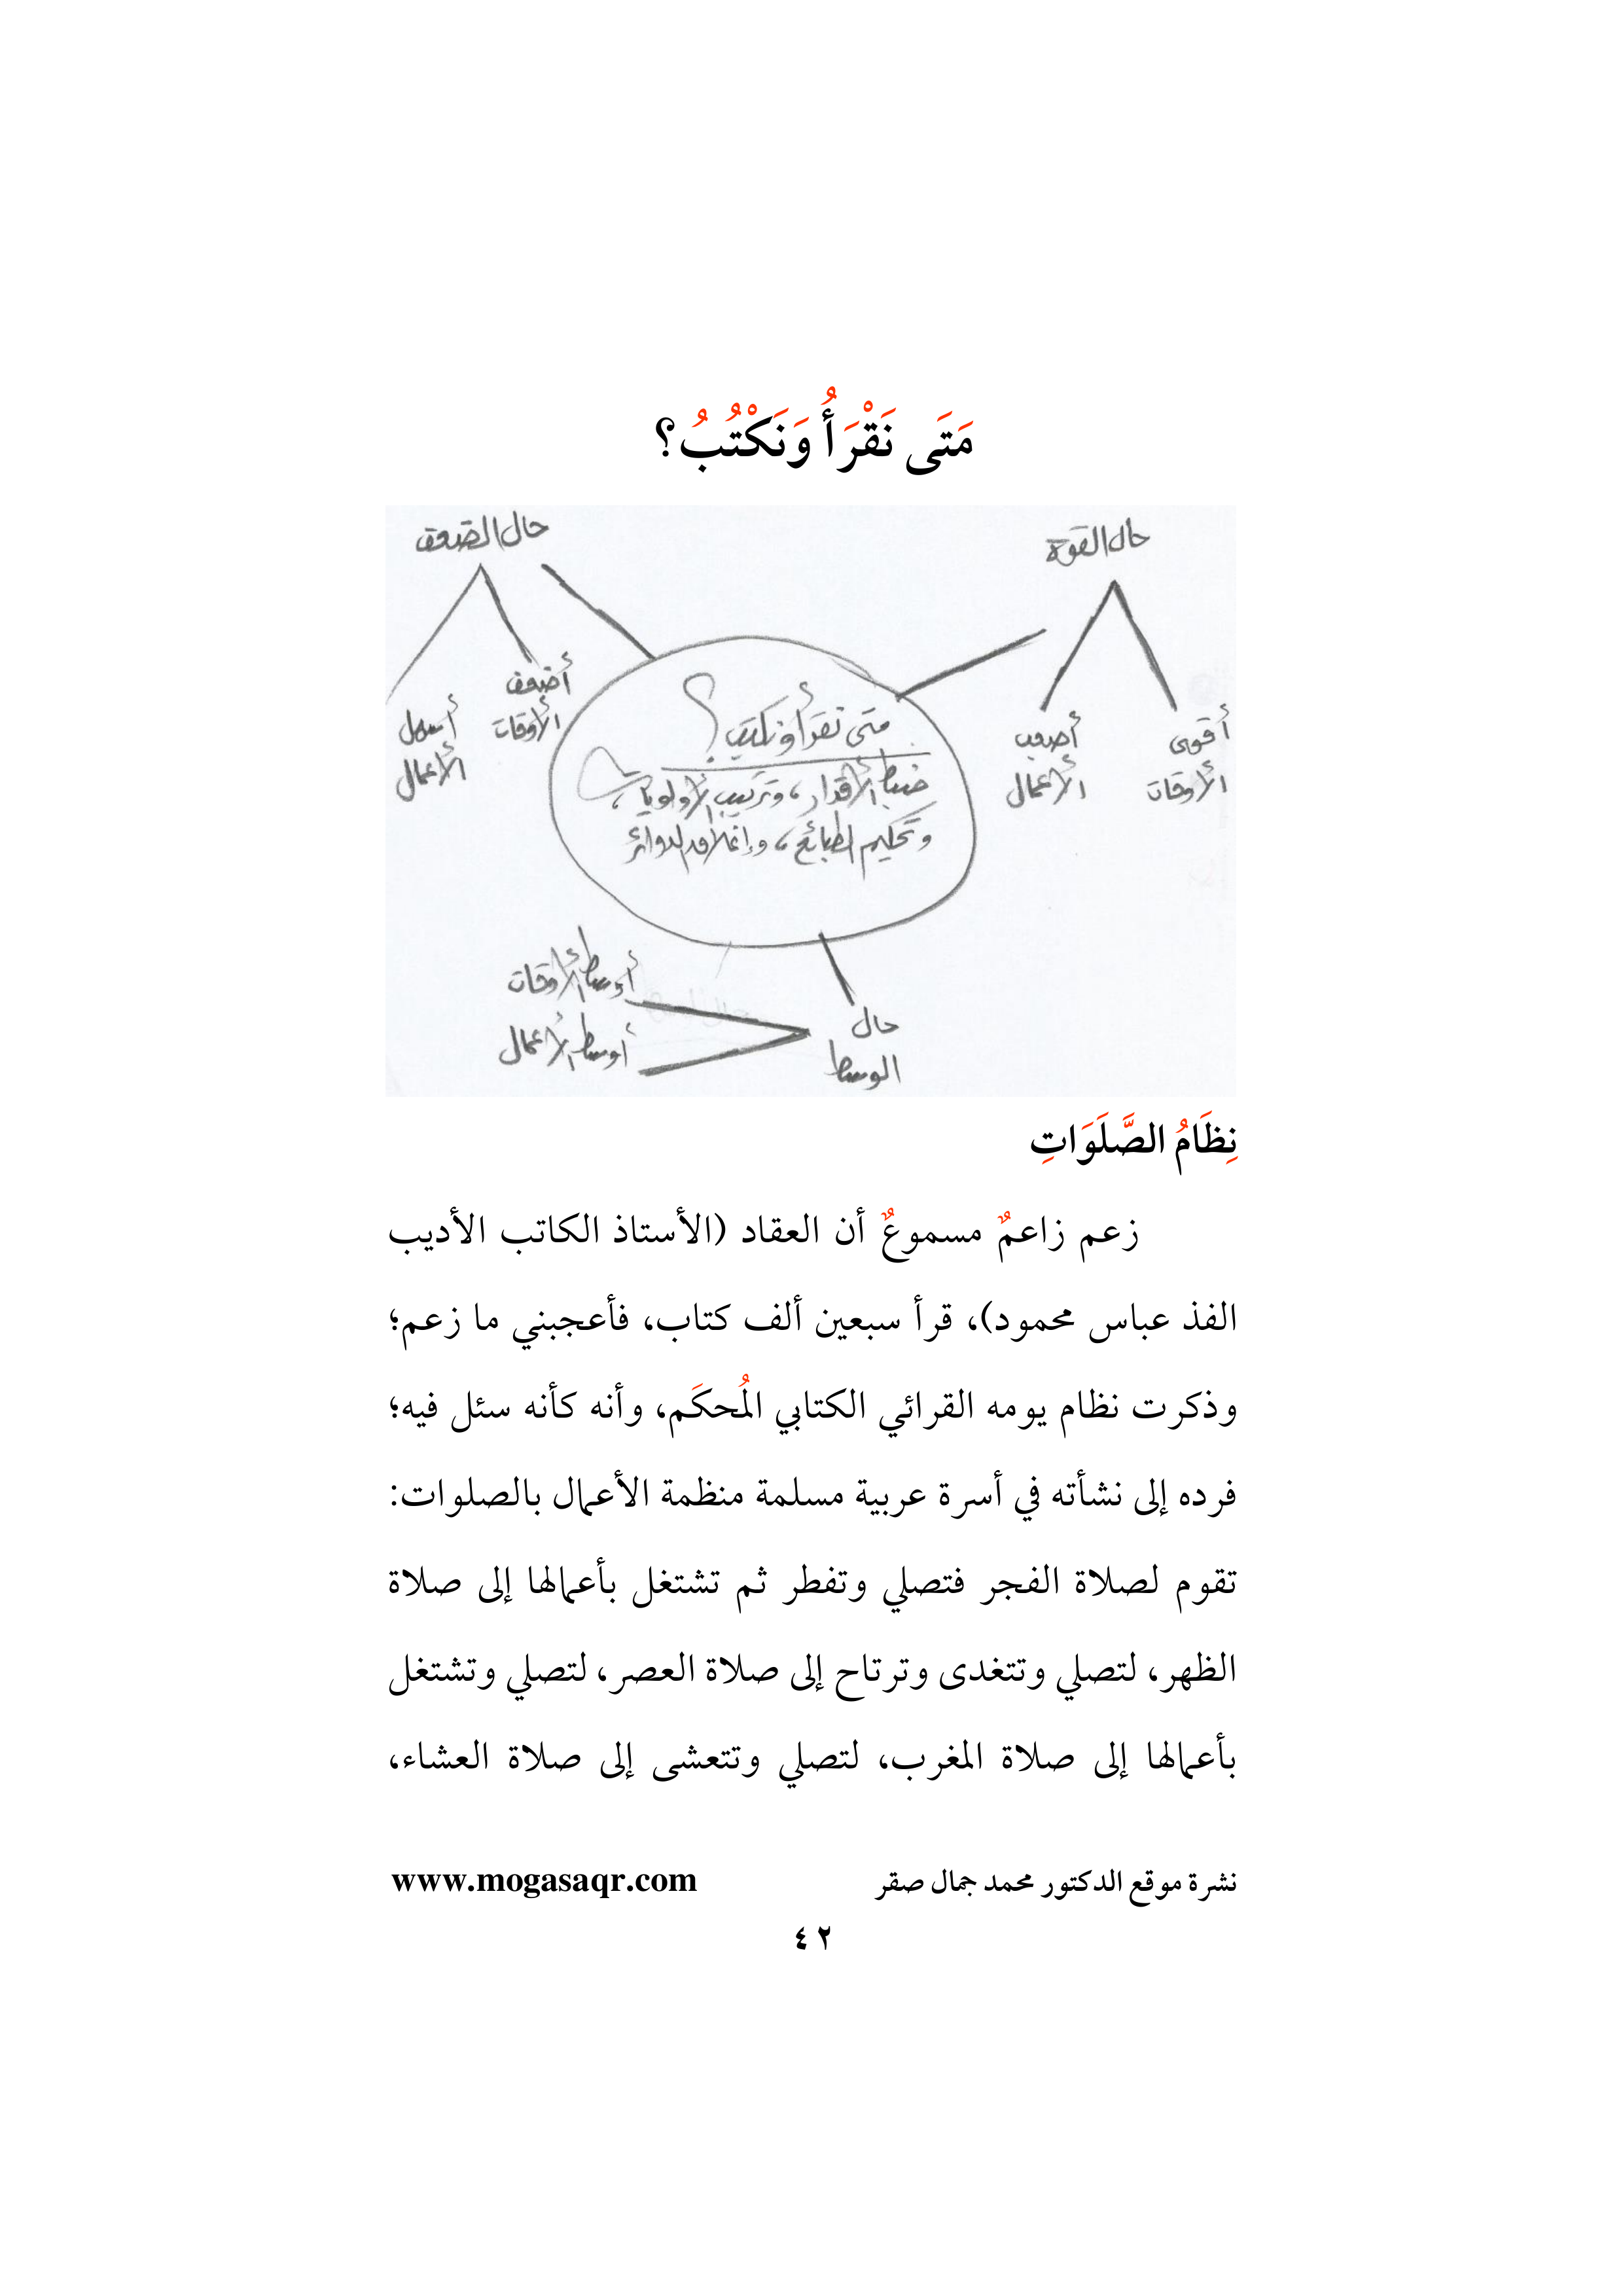 مَتَى نَقْرَأُ وَنَكْتُبُ؟
حال القوة
أقوى
الأوقات
أصعب
الأعمال
حال الضعف
أضعف
الأوقات
أسهل
الأعمال
متى نقرأ ونكتب؟
ضبط الأقدار، وترتيب الأولويات،
وتحكيم الطبائع، وإغلاق الدوائر
حال
الوسط
أوسط الأوقات
أوسط الأعمال
نِظَامُ الصَّلَوَاتِ
زعم زاعمٌ مسموعٌ أن العقاد (الأستاذ الكاتب الأديب
الفذ عباس محمود)، قرأ سبعين ألف كتاب، فأعجبني ما زعم؛
وذكرت نظام يومه القرائي الكتابي المُحكَم، وأنه كأنه سئل فيه؛
فرده إلى نشأته في أسرة عربية مسلمة منظمة الأعمال بالصلوات:
تقوم لصلاة الفجر فتصلي وتفطر ثم تشتغل بأعمالها إلى صلاة
الظهر، لتصلي وتتغدى وترتاح إلى صلاة العصر، لتصلي وتشتغل
بأعمالها إلى صلاة المغرب، لتصلي وتتعشى إلى صلاة العشاء،
نشرة موقع الدكتور محمد جمال صقر www.mogasaqr.com
٤٢